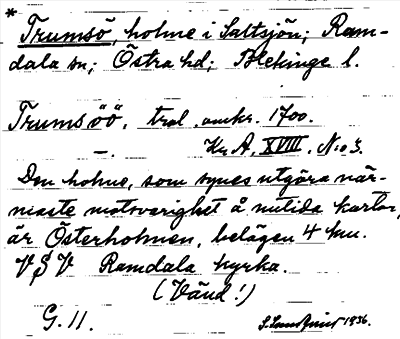 * Trumsö, holme i Saltsjön; Ram-
dala sn; Östra hd; Blekinge l.
Trumsöö, trol. omkr. 1700.
—. Kr A. XVIII. N:o 3.
Den holme, som synes utgöra när-
maste motsvarighet å nutida kartor,
är Österholmen, belägen 4 km.
V § V Ramdala kyrka.
(Vänd!)
G. 11. 1936.